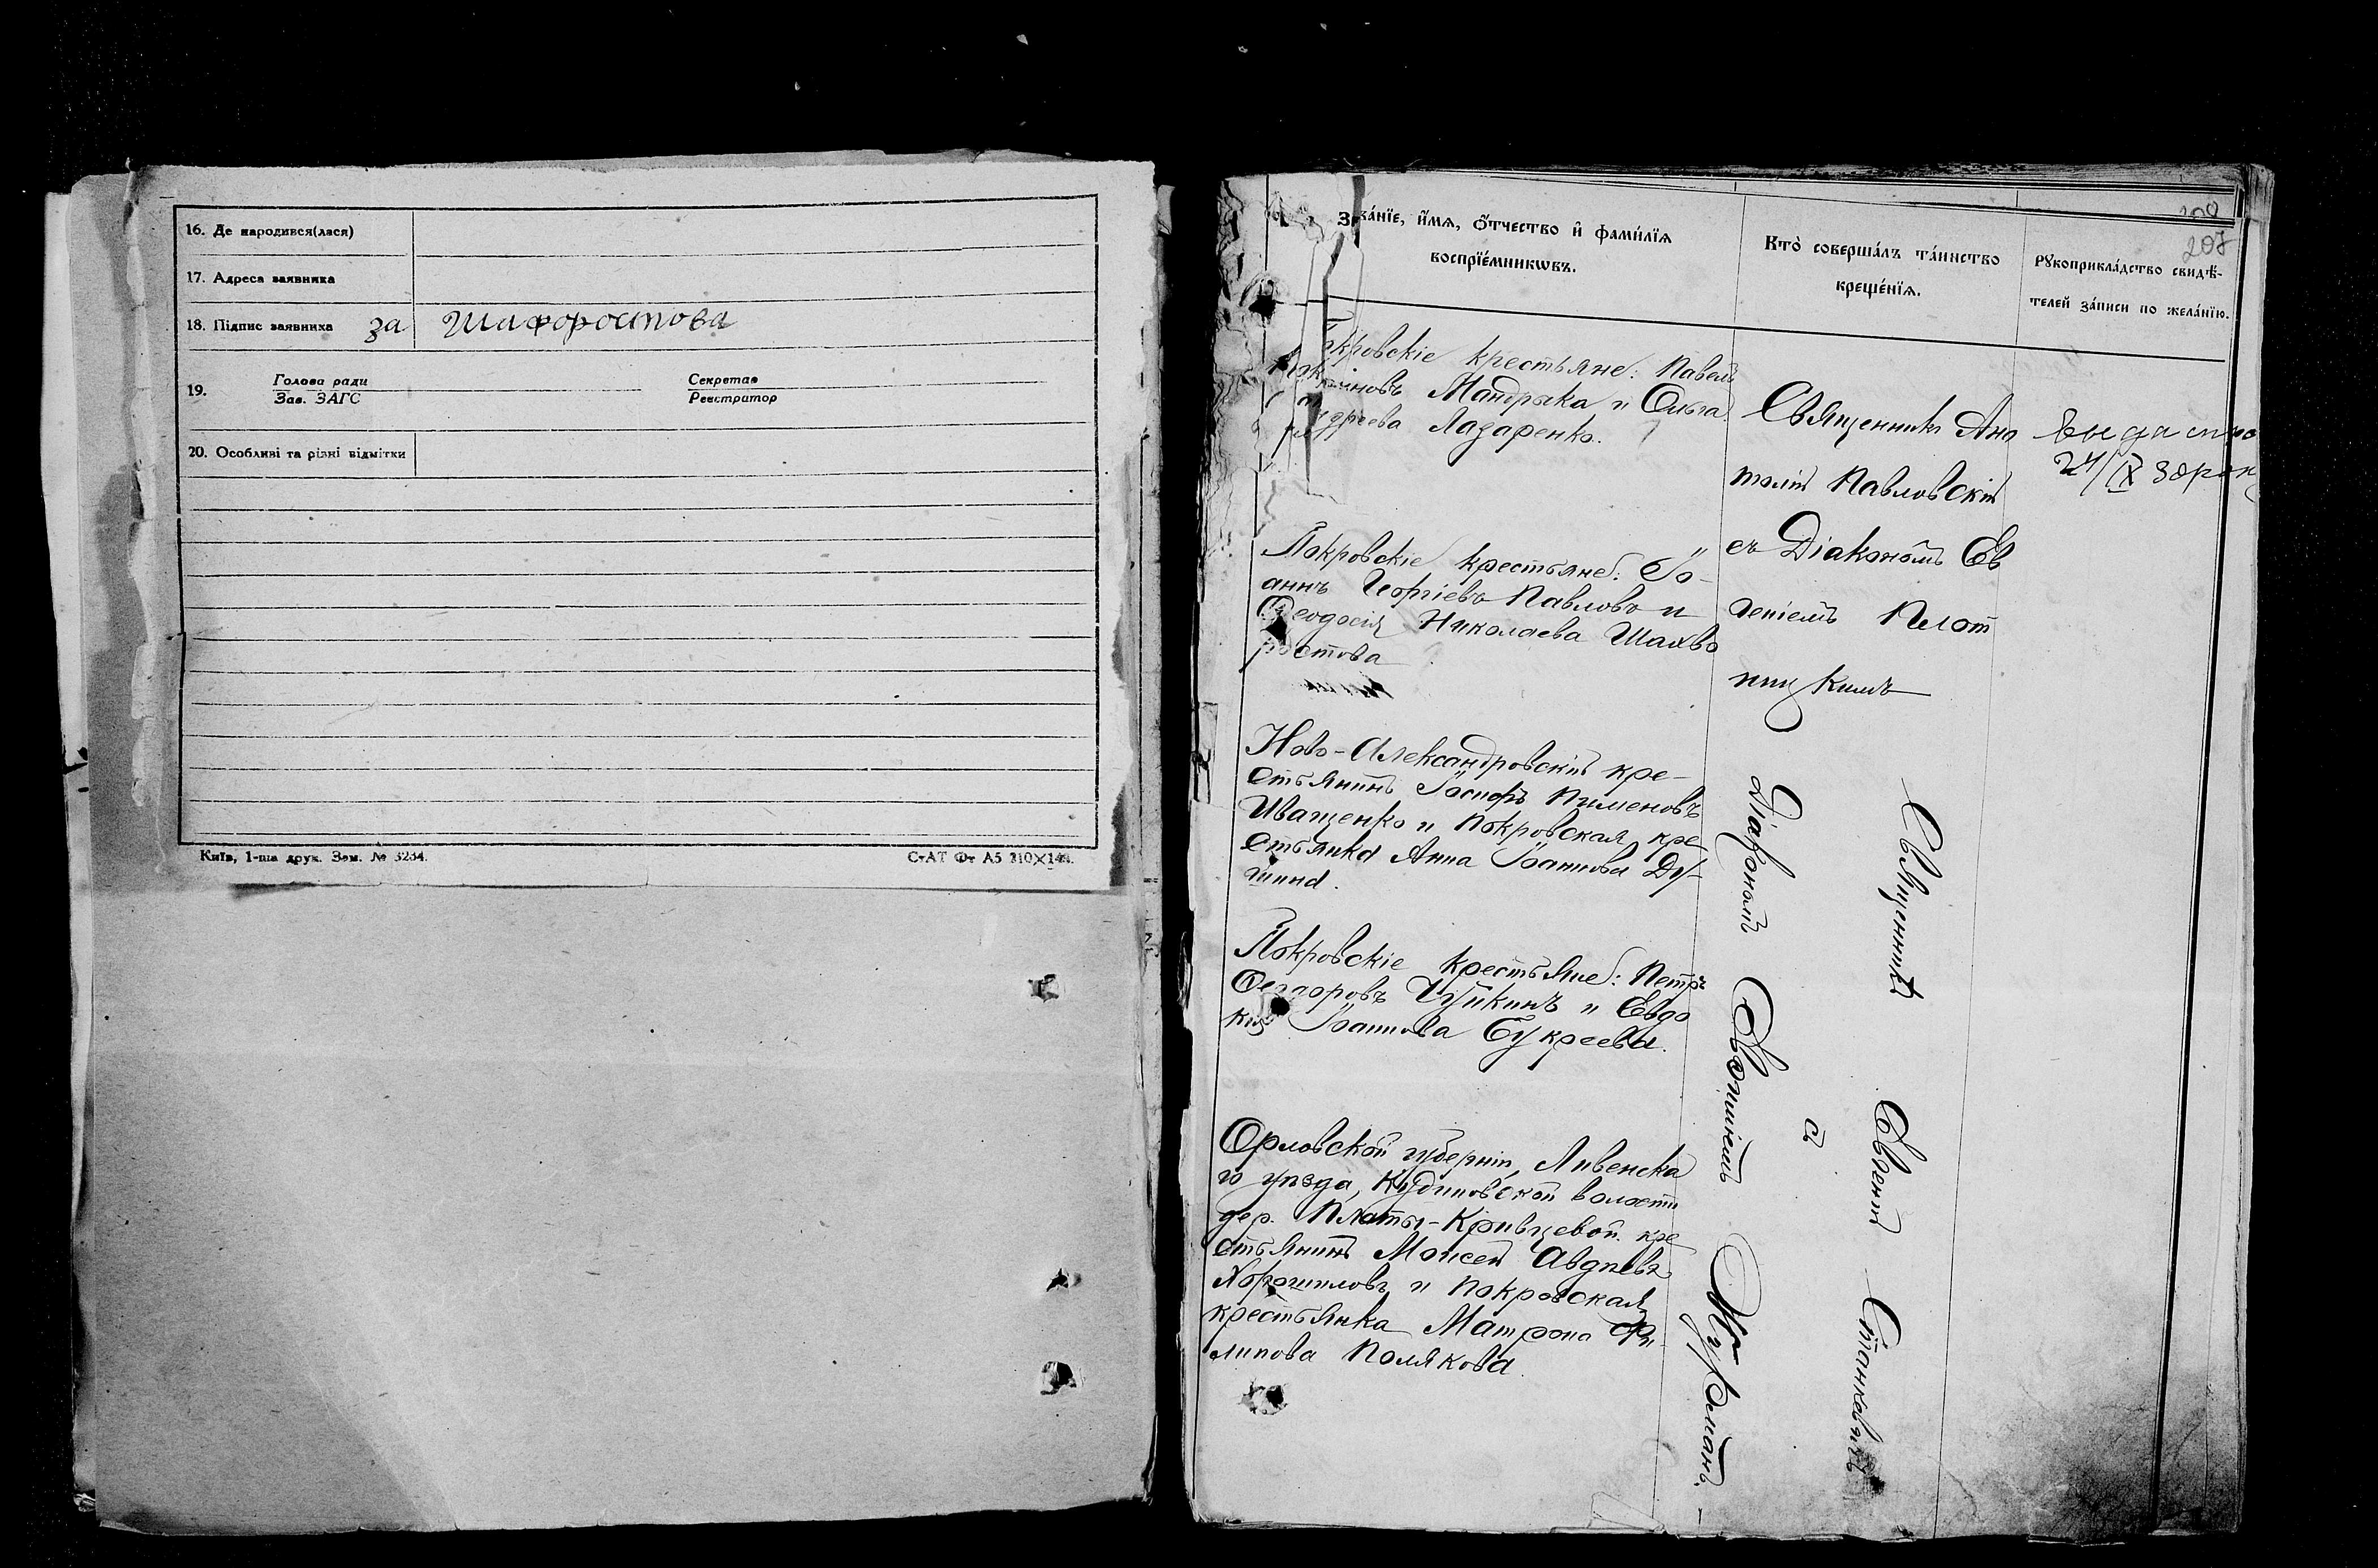 16. Де народився(лася)
17. Адреса заявника
18. Підпис заявника за Шафоростова
19. Голова ради Секретар
Зав. ЗАГС Реєстратор
20. Особливі та різні відмітки
Київ, 1-ша друк. Зам. № 3234.
СтАТ Фт А5 210×148.
207
Зва́нїе, и҆́мѧ, ѻ҆́тчество и҆ фами́лїѧ
воспрїе́мникѡвъ.
Кто̀ соверша́лъ та́инство
креще́нїѧ.
Рꙋкоприкла́дство свидѣ́-
телей за́писи по жела́нїю.
кровскіе крестьяне: Павелъ
Мандрыка и Ольга
дреева Лазаренко.
Священникъ Ана
толій Павловскій
съ Діакономъ Ев
геніемъ Плот
ницкимъ
24/IX 30
Покровскіе крестьяне: Іо-
аннъ Георгіевъ Павловъ и
Ѳеодосія Николаева Шахво
ростова
Ново-Александровскій кре-
стьянинъ Іосифъ Пименовъ
Иващенко и Покровская кре
стьянка Анна Іоаннова Ду-
шина.
Покровскіе крестьяне: Петръ
Ѳеодоровъ Чуйкинъ и Евдо
кія Іоаннова Букреева.
Орловской губерніи, Ливенска
го уѣзда, Кудиновской волости
дер. Платы-Кривцевой кре
стьянинъ Моисей Авдѣевъ
Хорошиловъ и Покровская
крестьянка Матрона Фи-
липова Полякова.
Священникъ Евгеній Станкевичъ
съ
Діакономъ Евгеніемъ